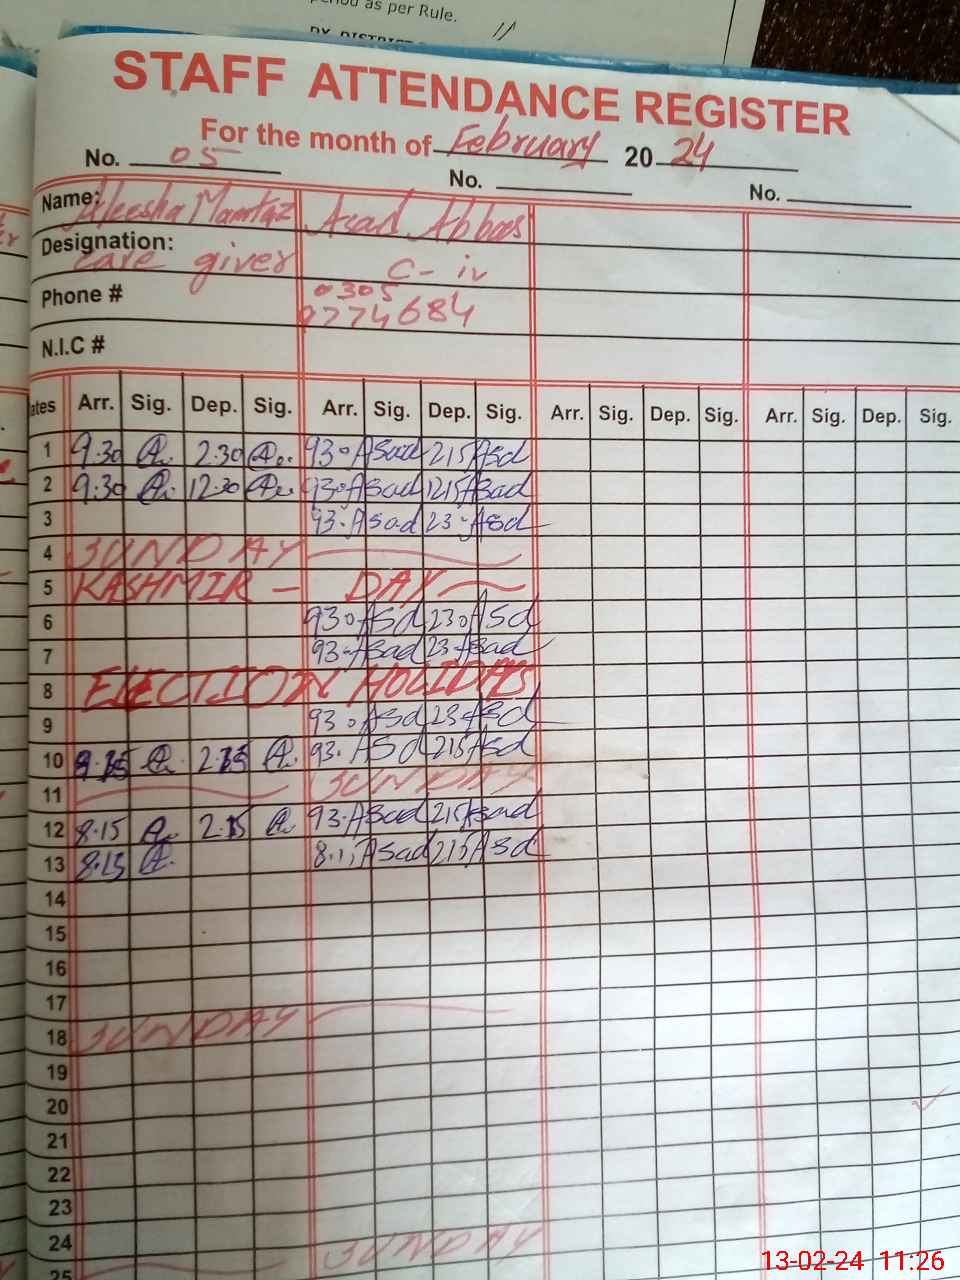 period as per Rule.
STAFF ATTENDANCE REGISTER
For the month of February 2024
No. 05 No. No.
Name: Aleesha Mamtaz Asad Abbas
Designation: care giver C- iv
Phone # 0305
9774684
N.I.C #
ates Arr. Sig. Dep. Sig. Arr. Sig. Dep. Sig. Arr. Sig. Dep. Sig. Arr. Sig. Dep. Sig.
1 9:30 2:30 930 Asad 215 Asd
2 9:30 12:30 930 Asad 1215 Asad
3 93- Asad 23- Asd
4 SUNDAY
5 KASHMIR - DAY
6 930 Asd 230 Asd
7 93- Asad 23- Asad
8 ELECTION HOLIDAYS
9 930 Asd 23- Asd
10 2.15 93. Asd 215 Asd
11 SUNDAY
12 8.15 2.15 93. Asad 215 Asad
13 8.15 8.1 Asad 215 Asd
14
15
16
17
18 SUNDAY
19
20
21
22
23
24
25 SUNDAY
13-02-24 11:26